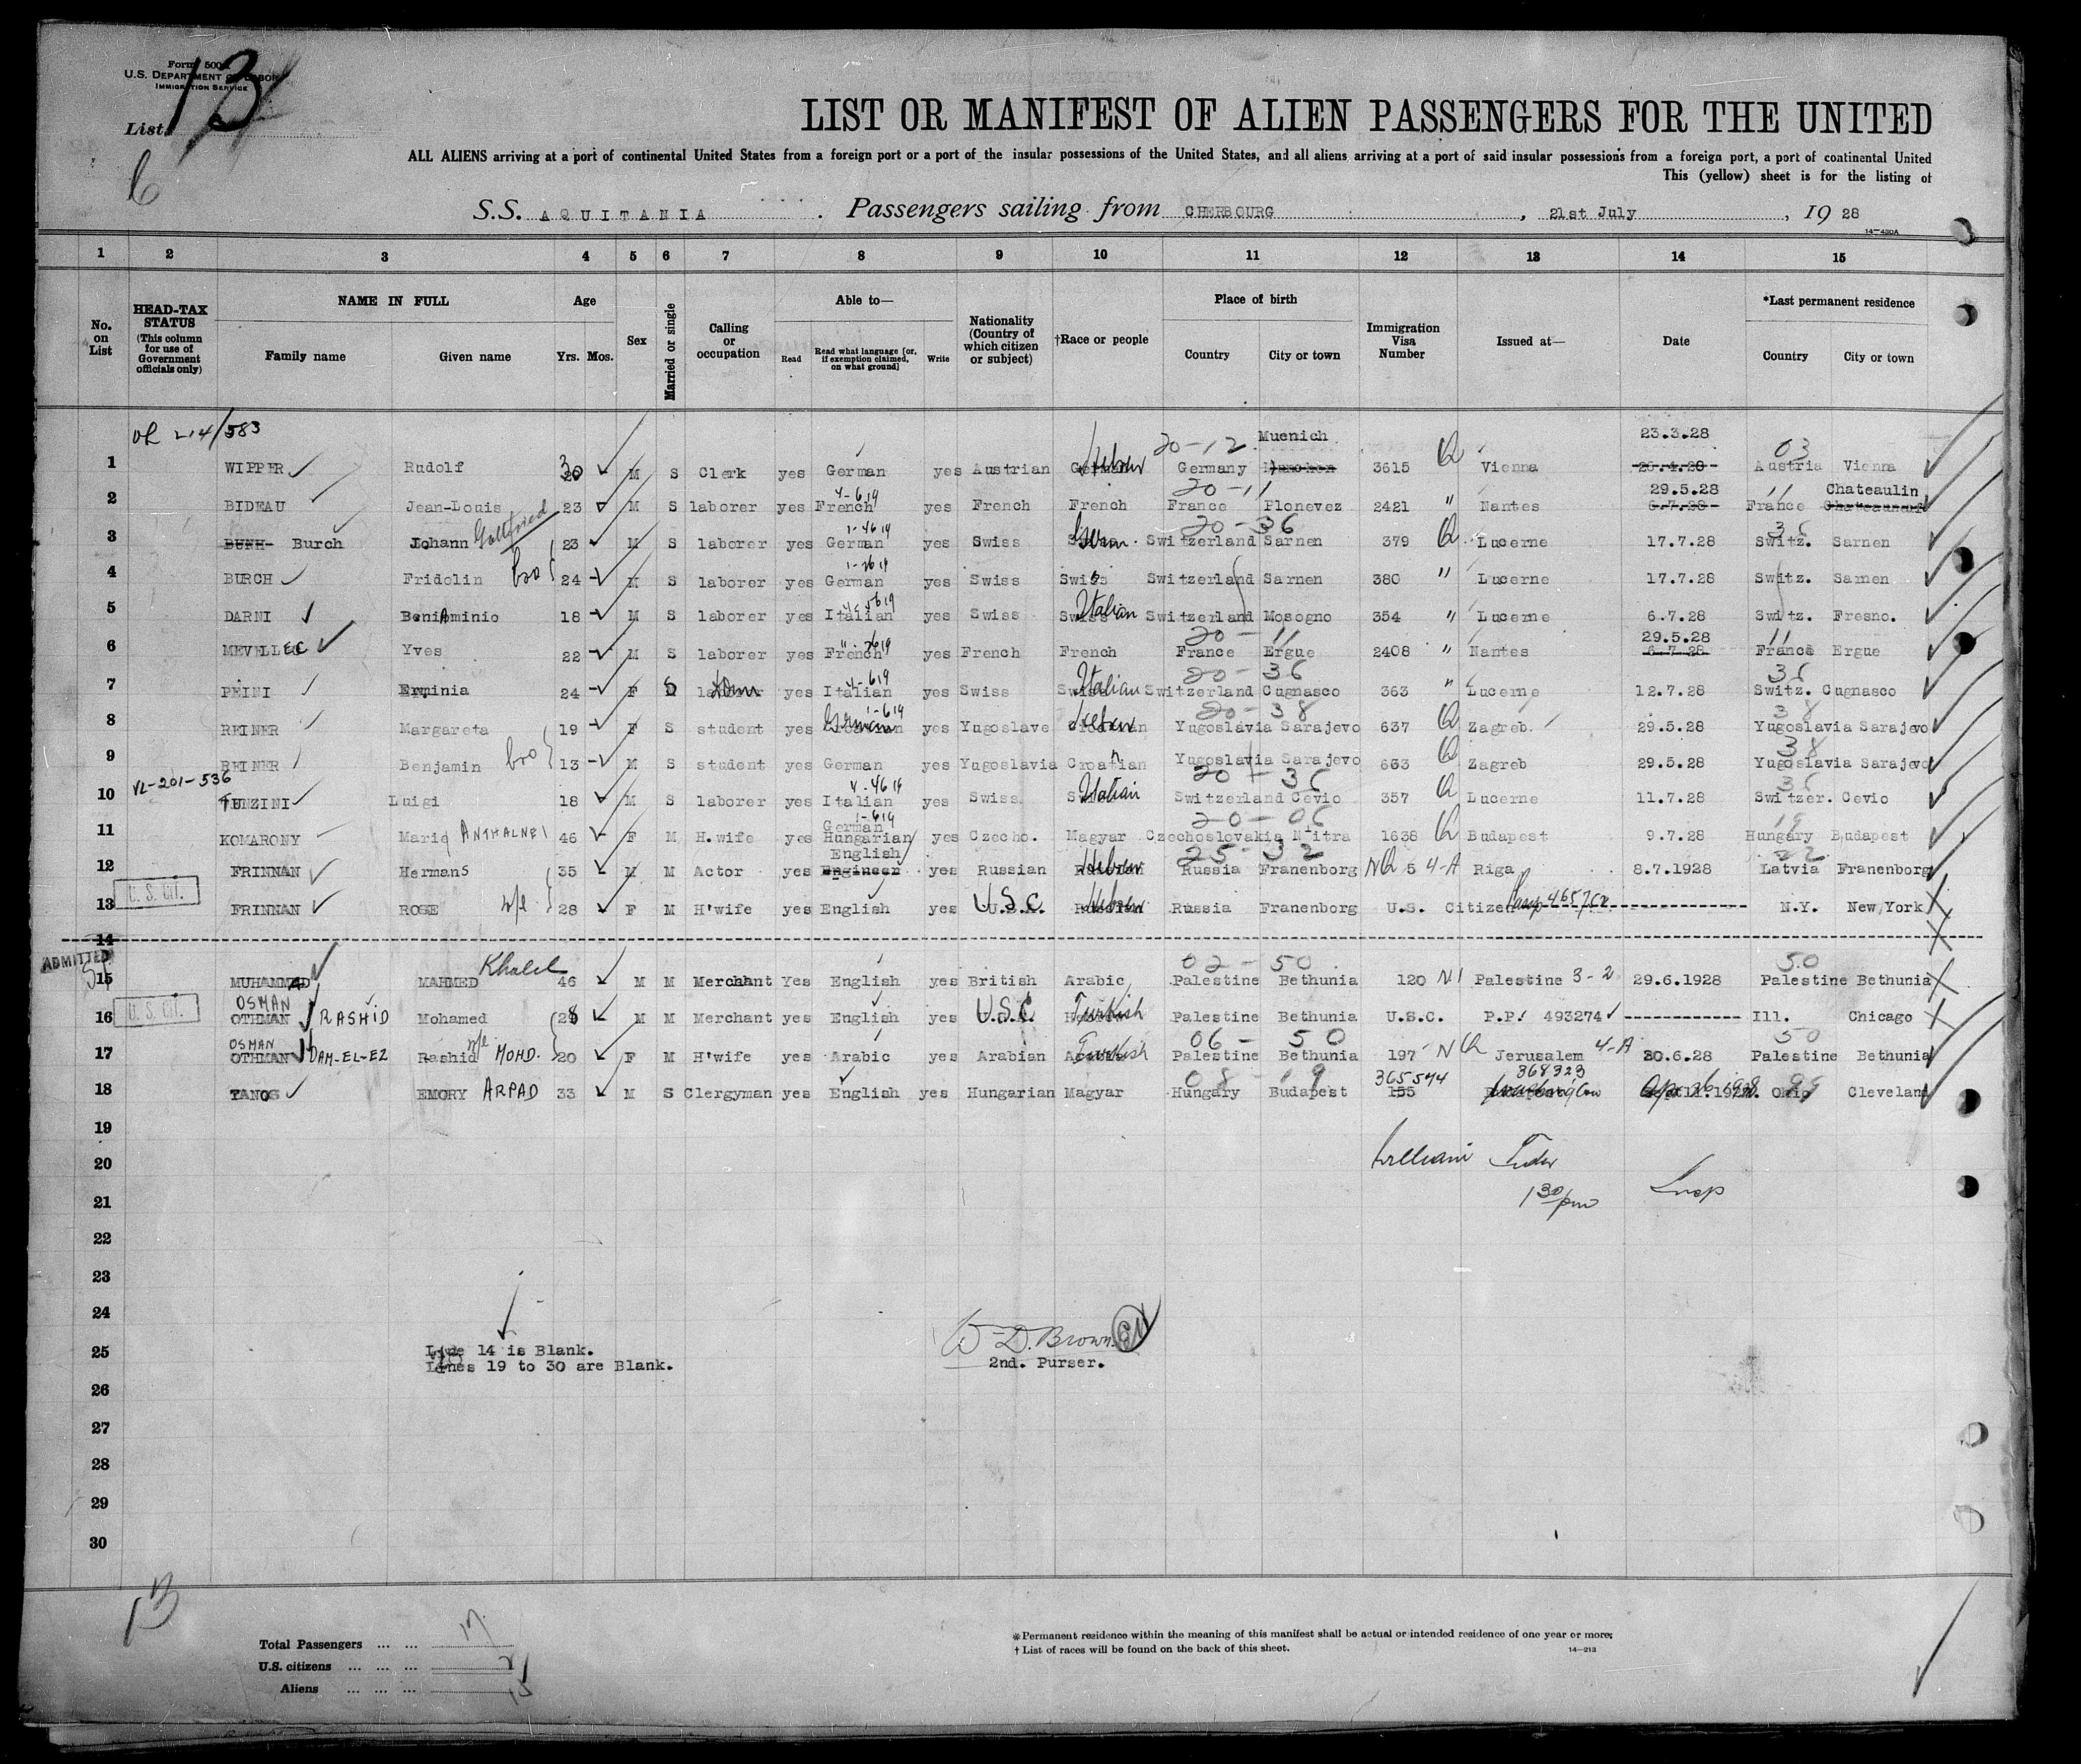 Form 500
U.S. DEPARTMENT OF LABOR
IMMIGRATION SERVICE
List 13
6
LIST OR MANIFEST OF ALIEN PASSENGERS FOR THE UNITED
ALL ALIENS arriving at a port of continental United States from a foreign port or a port of the insular possessions of the United States, and all aliens arriving at a port of said insular possessions from a foreign port, a port of continental United
This (yellow) sheet is for the listing of
S.S. AQUITANIA. Passengers sailing from CHERBOURG, 21st July, 19 28
14-430A
1 2 3 4 5 6 7 8 9 10 11 12 13 14 15
No. on List
HEAD-TAX STATUS (This column for use of Government officials only)
NAME IN FULL
Family name Given name
Age
Yrs. Mos.
Sex
Married or single
Calling or occupation
Able to—
Read Read what language [or, if exemption claimed, on what ground] Write
Nationality (Country of which citizen or subject)
†Race or people
Place of birth
Country City or town
Immigration Visa Number
Issued at—
Date
*Last permanent residence
Country City or town
214/583 20-12 Muenich 23.3.28 03
1 WIPPER Rudolf 30 M S Clerk yes German yes Austrian Hebrew Germany 3615 Q Vienna Austria Vienna
4-619 20-11 29.5.28 11 Chateaulin
2 BIDEAU Jean-Louis 23 M S laborer yes French yes French French France Plonevez 2421 " Nantes 6.7.28 France
Gottfried 1-4619 20-36 36
3 BUNH- Burch Johann 23 M S laborer yes German yes Swiss Germ. Switzerland Sarnen 379 Q Lucerne 17.7.28 Switz. Sarnen
bro 1-2619
4 BURCH Fridolin 24 M S laborer yes German yes Swiss Swiss Switzerland Sarnen 380 " Lucerne 17.7.28 Switz. Sarnen
4-5619
5 DARNI BeniAminio 18 M S laborer yes Italian yes Swiss Italian Switzerland Mosogno 354 " Lucerne 6.7.28 Switz. Fresno.
20-11 29.5.28 11
6 MEVELLEC Yves 22 M S laborer yes French yes French French France Ergue 2408 " Nantes 6.7.28 France Ergue
4-619 20-36 36
7 PEINI Erminia 24 F S yes Italian yes Swiss Italian Switzerland Cugnasco 363 " Lucerne 12.7.28 Switz. Cugnasco
1-619 20-38 38
8 REINER Margareta 19 F S student yes German yes Yugoslave Hebrew Yugoslavia Sarajevo 637 Q Zagreb. 29.5.28 Yugoslavia Sarajevo
bro 38
9 REINER Benjamin 13 M S student yes German yes Yugoslavia Croatian Yugoslavia Sarajevo 633 Q Zagreb 29.5.28 Yugoslavia Sarajevo
VL-201-536 4-4619 20-36 36
10 TUNZINI Luigi 18 M S laborer yes Italian yes Swiss. Italian Switzerland Cevio 357 Q Lucerne 11.7.28 Switzer. Cevio
1-619 German 20-06 19
11 KOMARONY Marie ANTHALNE 46 F M H.wife yes Hungarian yes Czecho. Magyar Czechoslovakia Nitra 1638 Q Budapest 9.7.28 Hungary Budapest
English 25-32 22
12 FRINNAN Hermans 35 M M Actor yes Engineer yes Russian Hebrew Russia Franenborg NQ 5 4-A Riga 8.7.1928 Latvia Franenborg
U.S. CIT.
13 FRINNAN ROSE w/e 28 F M H'wife yes English yes U.S.C. Hebrew Russia Franenborg U.S. Citizen N.Y. New York
14
ADMITTED
Khalil 02-50 50
15 MUHAMMAD MAHMED 46 M M Merchant Yes English yes British Arabic Palestine Bethunia 120 NI Palestine 3-2 29.6.1928 Palestine Bethunia
U.S. CIT. OSMAN
16 OTHMAN RASHID Mohamed 28 M M Merchant yes English yes U.S.C. Turkish Palestine Bethunia U.S.C. P.P. 493274 Ill. Chicago
OSMAN w/e 06-50 50
17 OTHMAN DAM-EL-EZ Rashid MOHD. 20 F M H'wife yes Arabic yes Arabian Turkish Palestine Bethunia 197 NQ Jerusalem 4-A 30.6.28 Palestine Bethunia
08-19 365574 368323 99
18 TANOS EMORY ARPAD 33 M S Clergyman yes English yes Hungarian Magyar Hungary Budapest 155 Washington Ohio Cleveland
19
20 William Insp
21 1 30/pm
22
23
24
Line 14 is Blank. W D. Brown
25 Lines 19 to 30 are Blank. 2nd. Purser.
26
27
28
29
30
13
Total Passengers ... ... 17
U.S. citizens ... ... ... 2
Aliens ... ... ... 15
*Permanent residence within the meaning of this manifest shall be actual or intended residence of one year or more.
† List of races will be found on the back of this sheet. 14-213